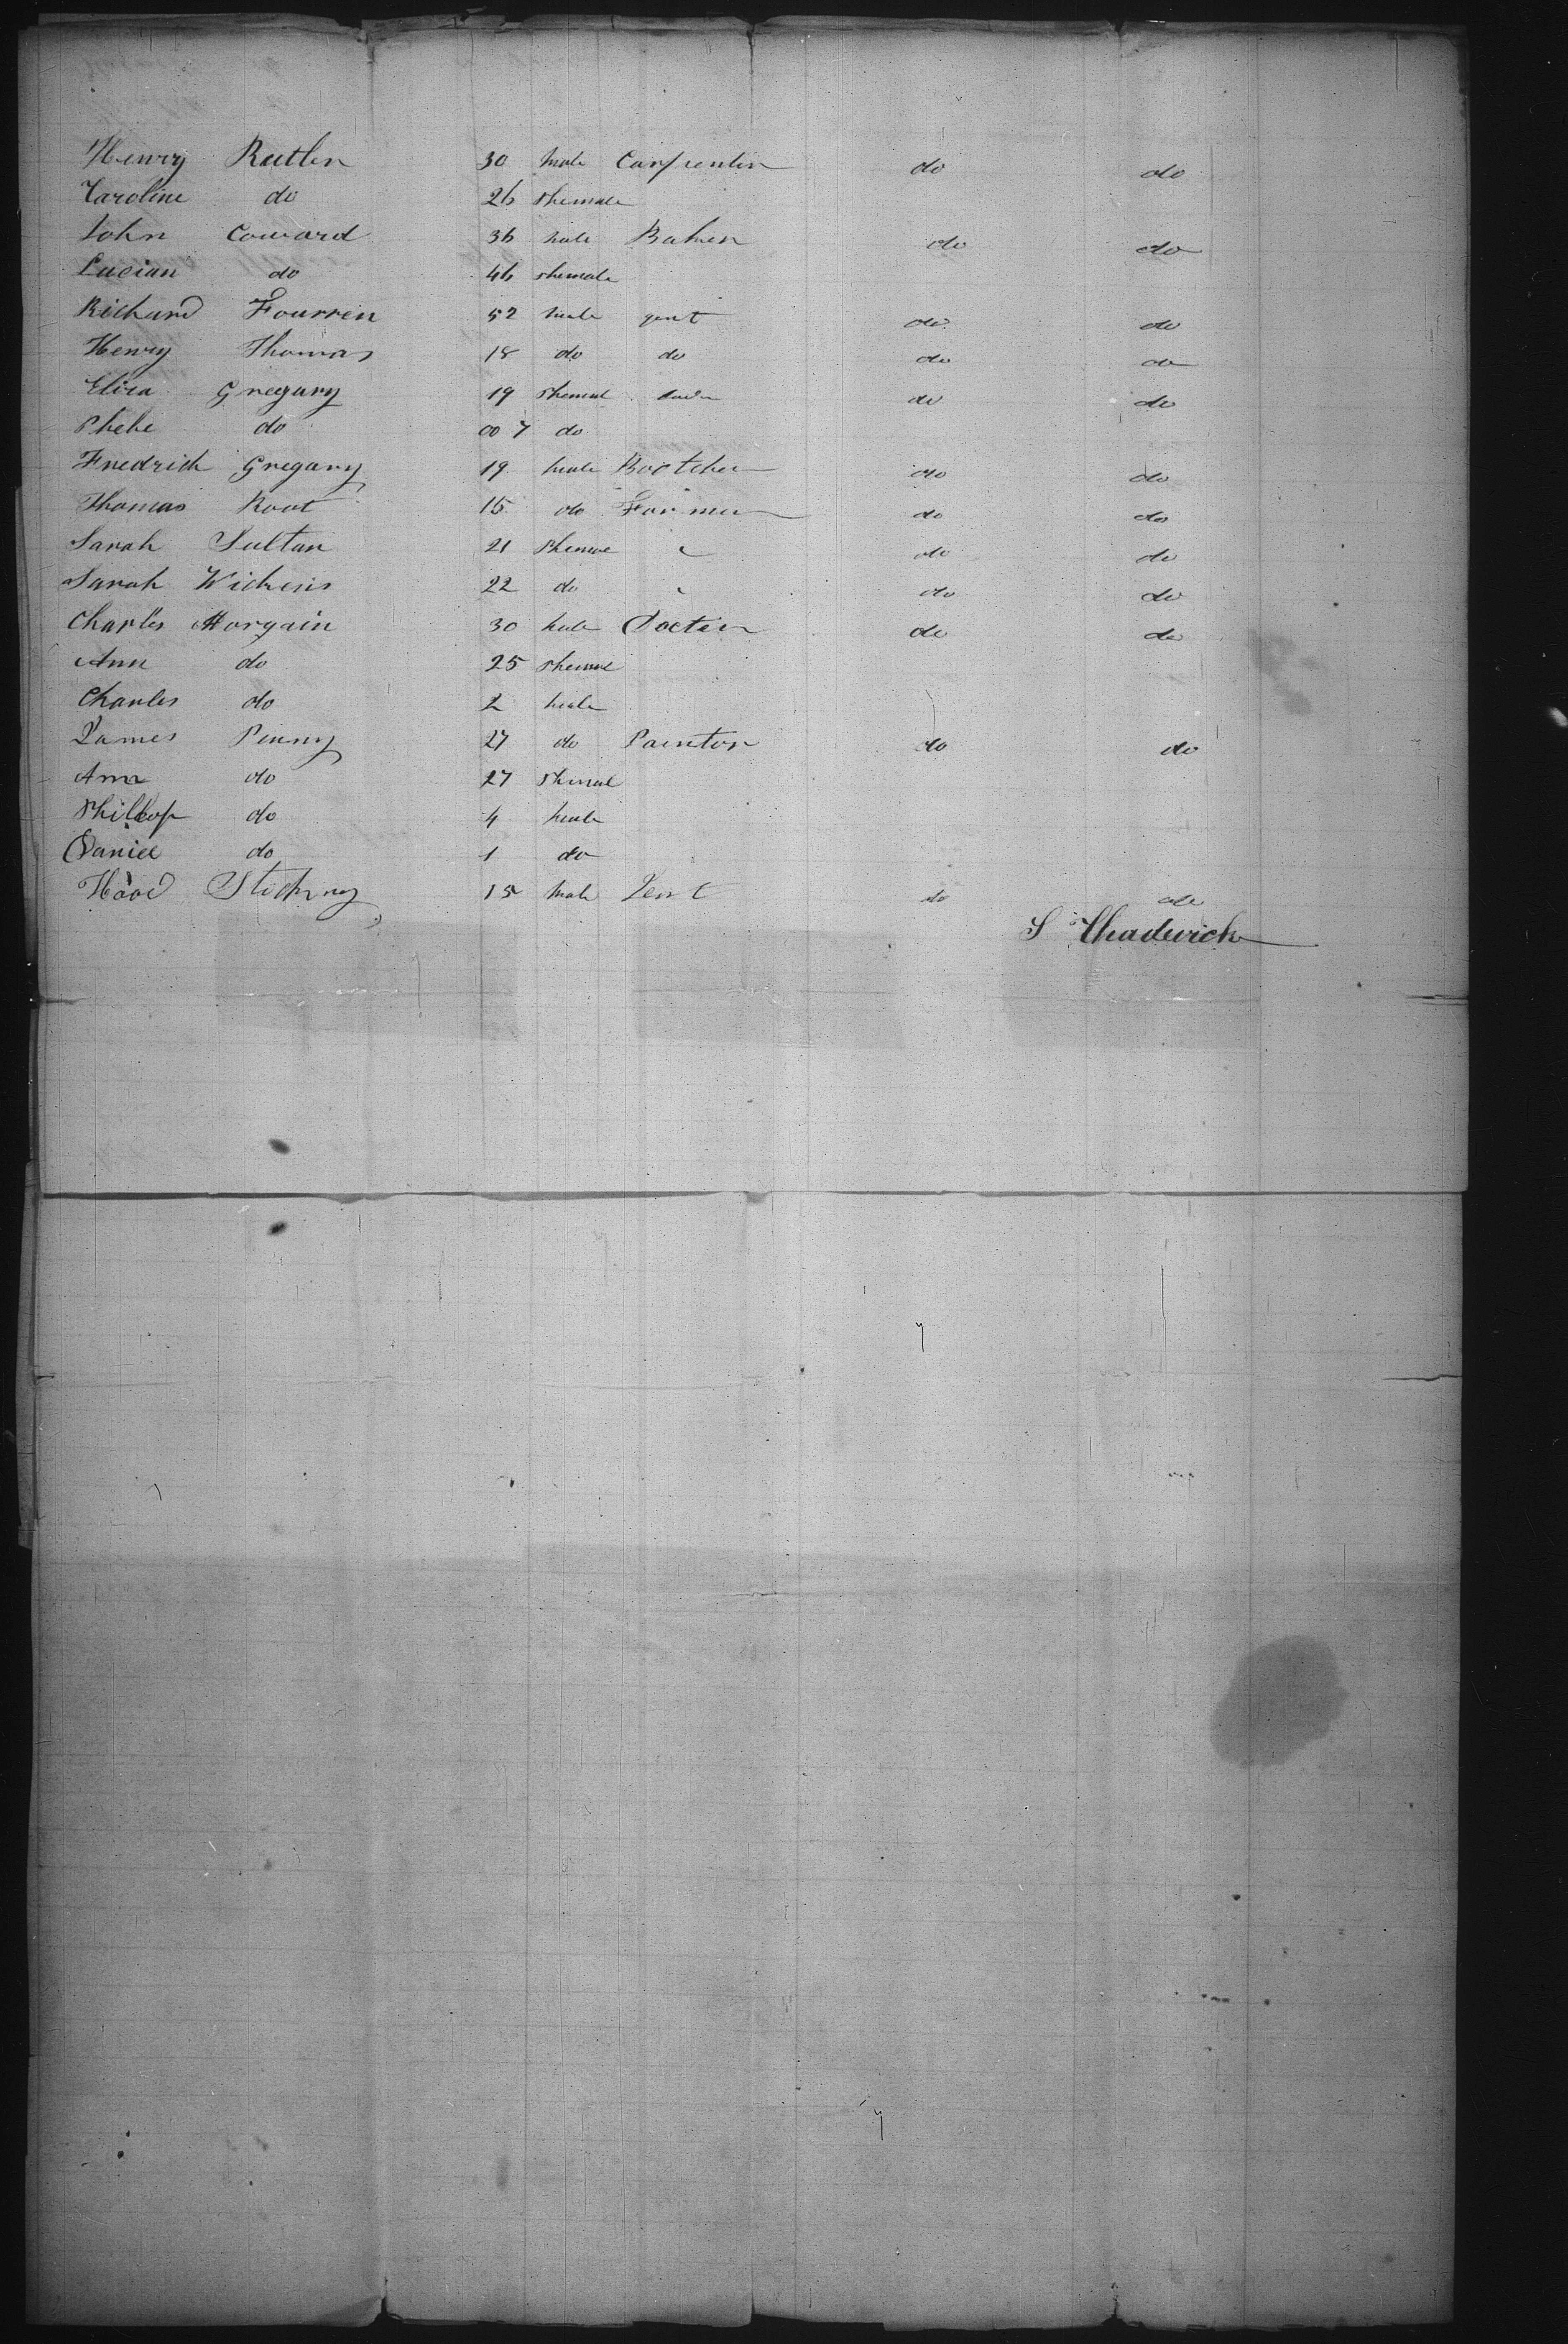 Henry Rutler 30 male Carpenter do do
Caroline do 26 shemale
John Coward 36 male Baker do do
Lucian do 46 shemale
Richard Fourren 52 male gent do do
Henry Thomas 18 do do do do
Eliza Gregary 19 shemal do do
Phebe do 00 7 do
Fredrick Gregary 19 male Bootcher do do
Thomas Root 15 do Farmer do do
Sarah Sultan 21 shemale do do
Sarah Wickens 22 do do do
Charles Morgain 30 male Docter do do
Ann do 25 shemal
Charles do 2 male
James Penny 27 do Painter do do
Ann do 27 shemal
Phillop do 4 male
Daniel do 1 do
Hood Stickney 15 male Gent do do
S Chadwick